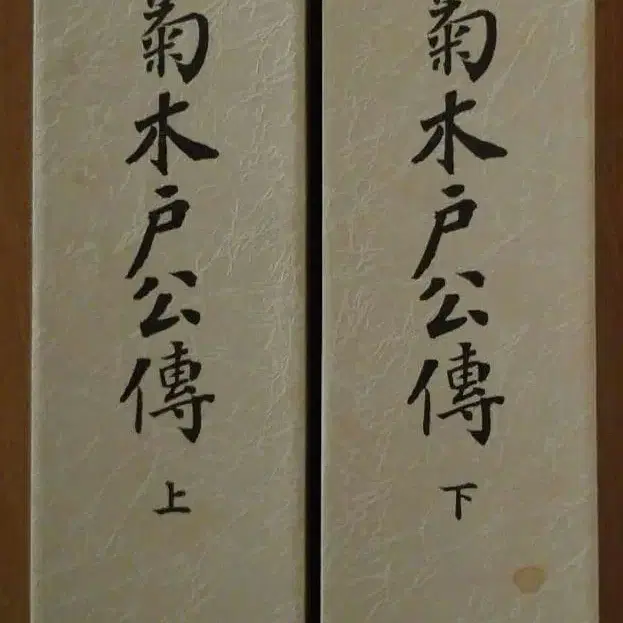 菊木戸公傳
上
菊木戸公傳
下